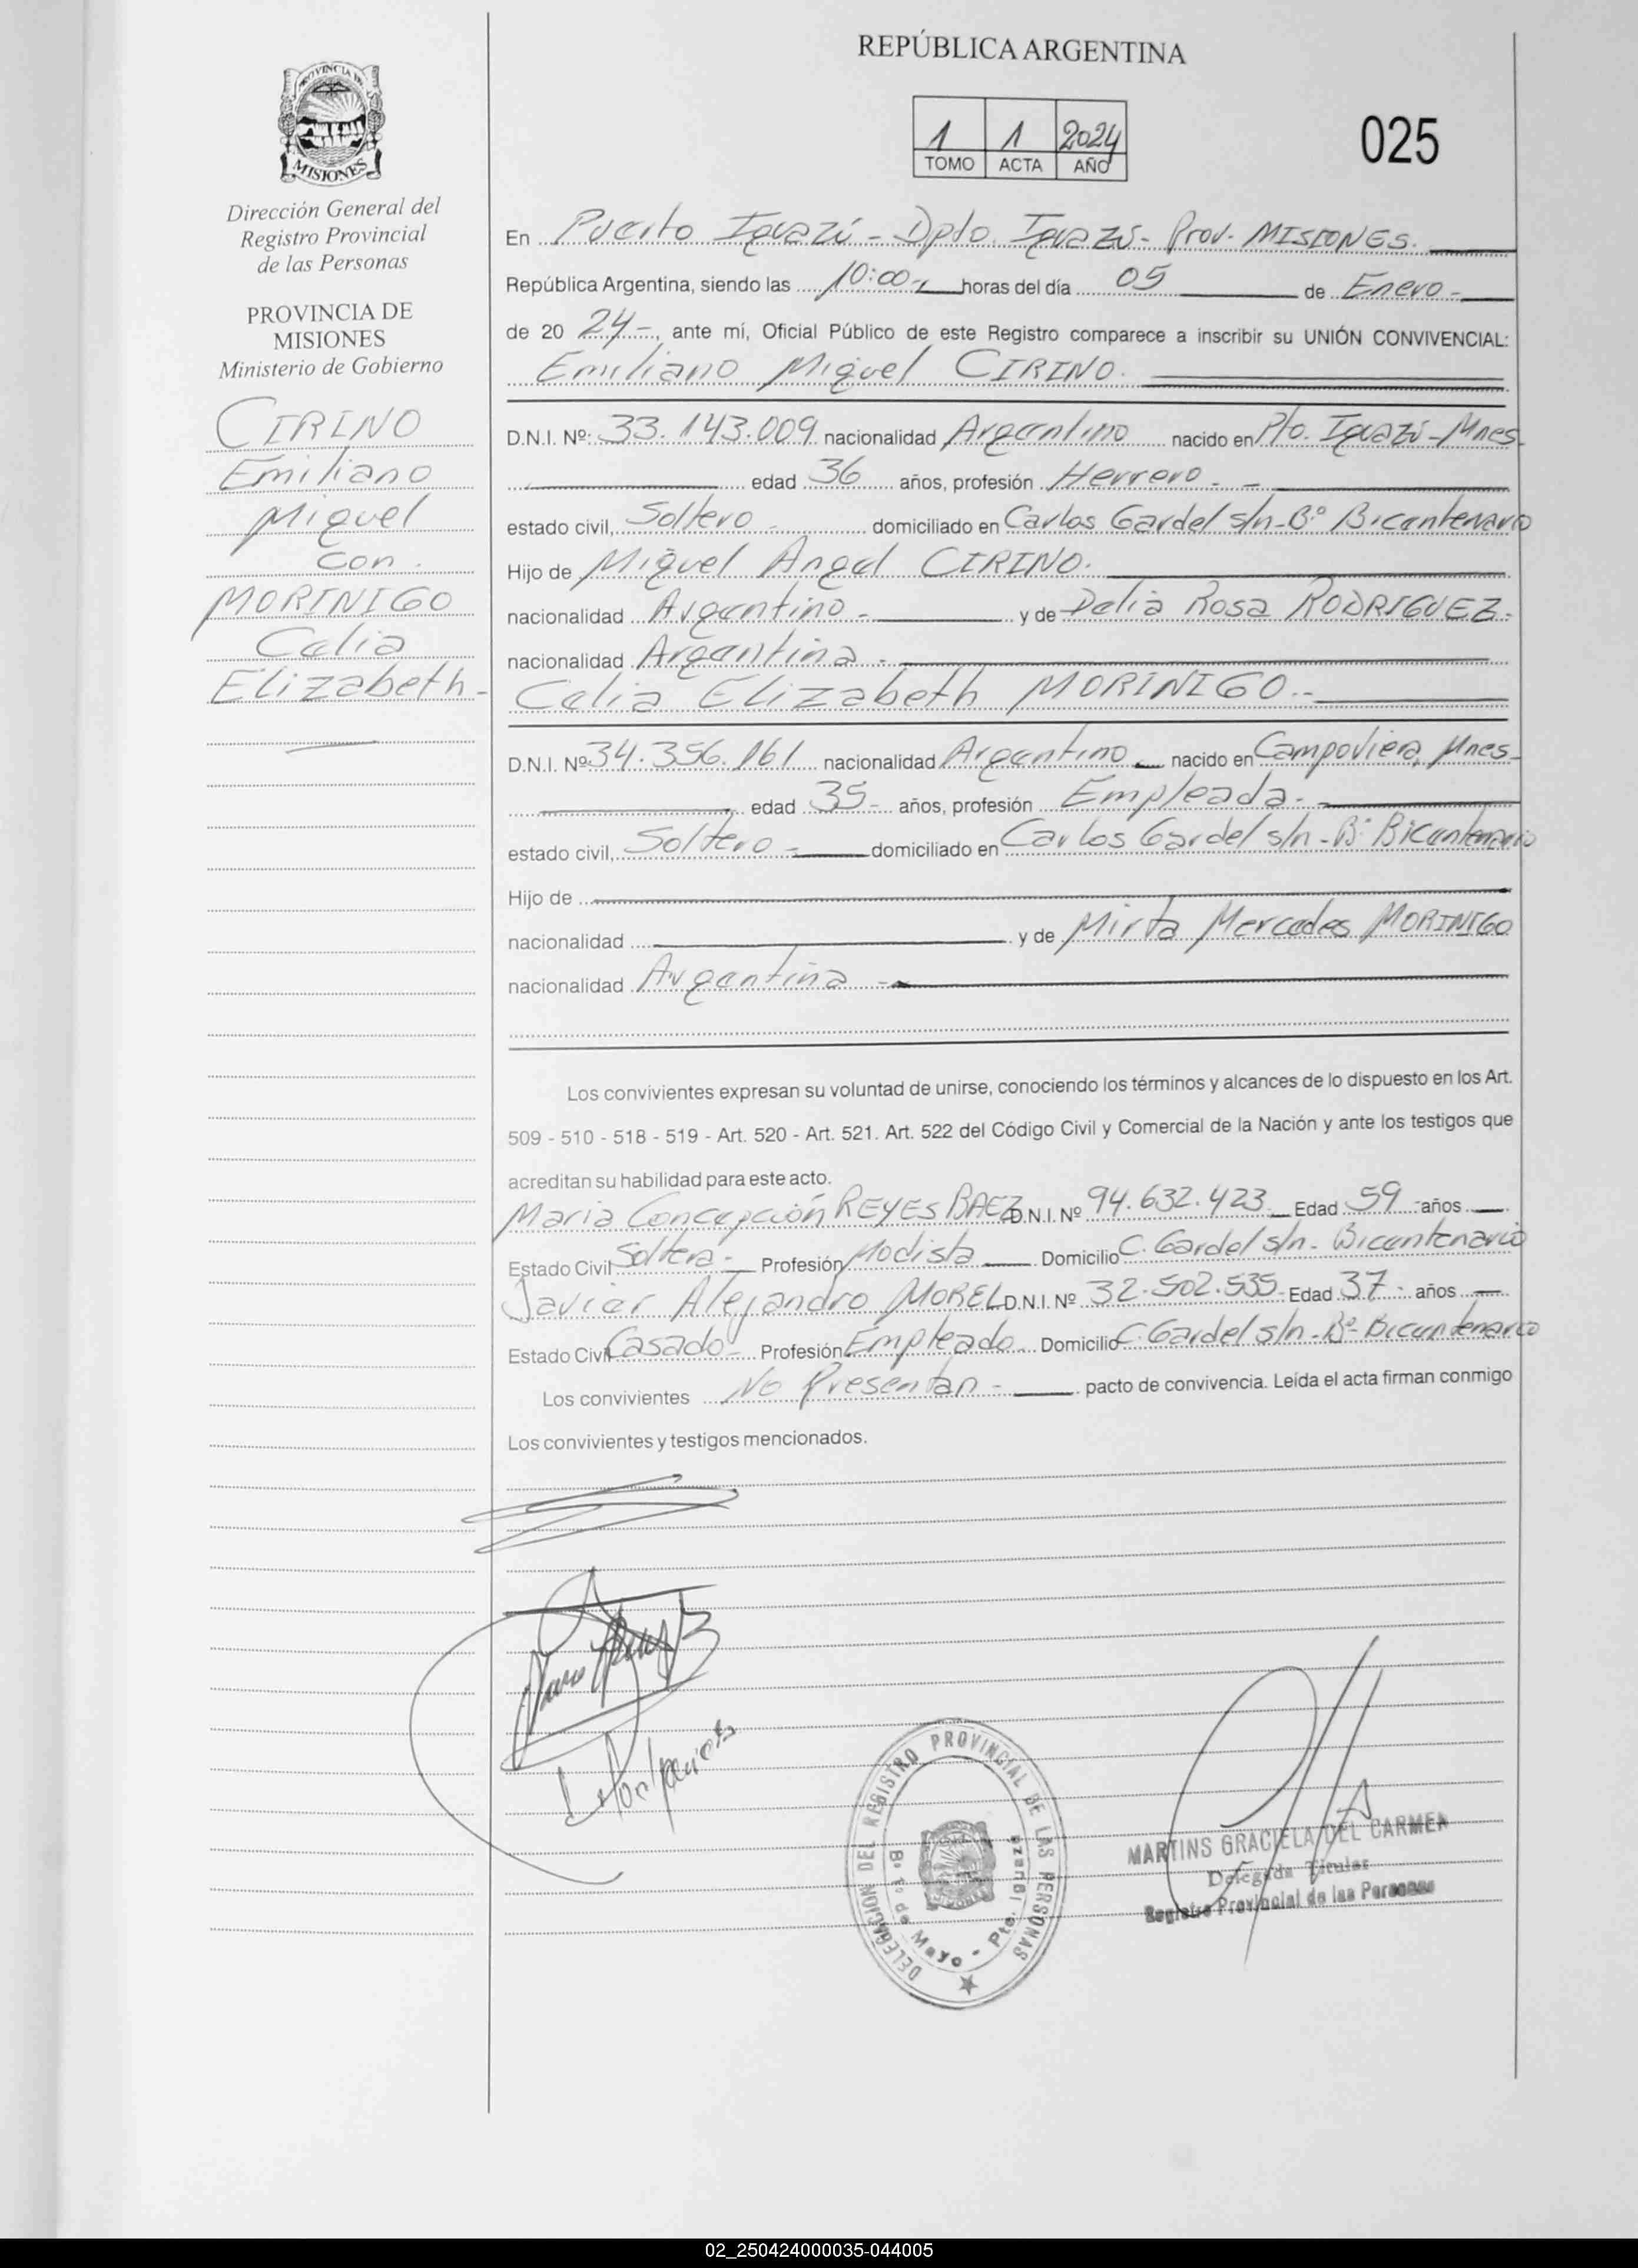 REPÚBLICA ARGENTINA
1 1 2024
TOMO ACTA AÑO
025
PROVINCIA DE
MISIONES
Dirección General del
Registro Provincial
de las Personas
PROVINCIA DE
MISIONES
Ministerio de Gobierno
CIRINO
Emiliano
Miguel
con.
MORINIGO
Celia
Elizabeth-
En Puerto Iguazú - Dpto. Iguazú - Prov. MISIONES.
República Argentina, siendo las 10:00 horas del día 05 de Enero-
de 20 24-, ante mí, Oficial Público de este Registro comparece a inscribir su UNIÓN CONVIVENCIAL:
Emiliano Miguel CIRINO.
D.N.I. Nº: 33.143.009 nacionalidad Argentino nacido en Pto. Iguazú-Mnes
edad 36 años, profesión Herrero - -
estado civil, Soltero - domiciliado en Carlos Gardel s/n-Bº Bicentenario
Hijo de Miguel Angel CIRINO.
nacionalidad Argentino - y de Delia Rosa RODRIGUEZ-
nacionalidad Argentina -
Celia Elizabeth MORINIGO.-
D.N.I. Nº 34.356.161 nacionalidad Argentino nacido en Campoviera, Mnes-
edad 35- años, profesión Empleada-
estado civil, Soltero - domiciliado en Carlos Gardel s/n-Bº Bicentenario
Hijo de
nacionalidad y de Mirta Mercedes MORINIGO
nacionalidad Argentina -
Los convivientes expresan su voluntad de unirse, conociendo los términos y alcances de lo dispuesto en los Art.
509 - 510 - 518 - 519 - Art. 520 - Art. 521. Art. 522 del Código Civil y Comercial de la Nación y ante los testigos que
acreditan su habilidad para este acto.
Maria Concepción REYES BAEZ D.N.I. Nº 94.632.423 Edad 59 - años
Estado Civil Soltera- Profesión Modista Domicilio C. Gardel s/n - Bicentenario
Javier Alejandro MOREL D.N.I. Nº 32.502.535- Edad 37- años
Estado Civil Casado- Profesión Empleado Domicilio C. Gardel s/n-Bº-Bicentenario
Los convivientes No Presentan - pacto de convivencia. Leída el acta firman conmigo
Los convivientes y testigos mencionados.
DELEGACIÓN DEL REGISTRO PROVINCIAL DE LAS PERSONAS
Bº 1º de Mayo - Pto. Iguazú
MARTINS GRACIELA DEL CARMEN
Delegada Titular
Registro Provincial de las Personas
02_250424000035-044005